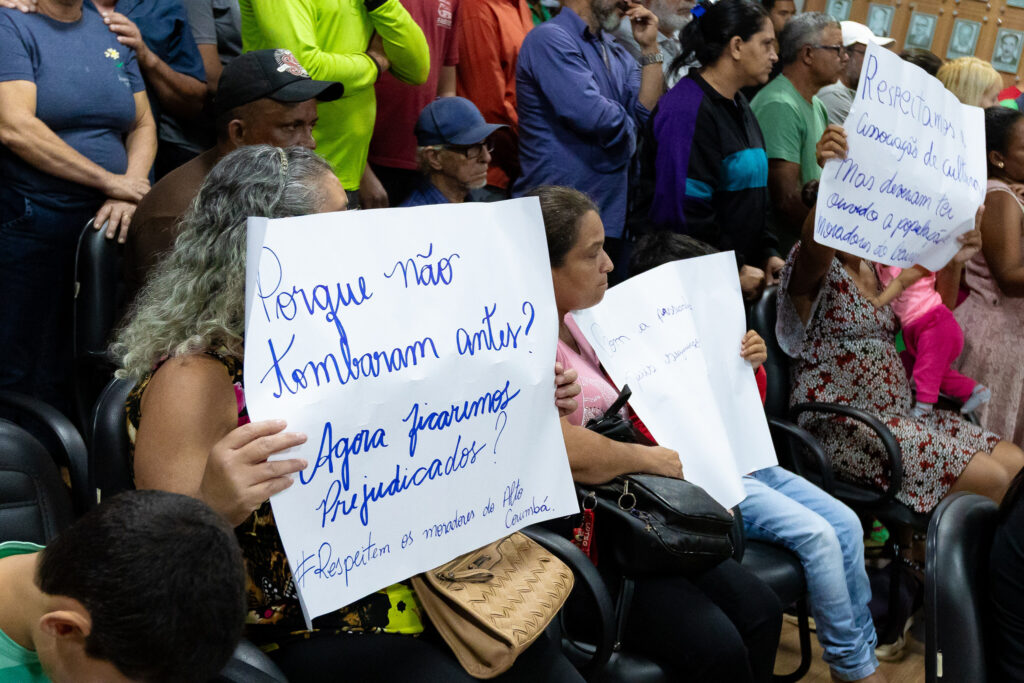 Porque não
tombaram antes?
Agora ficaremos
Prejudicados?
#Respeitem os moradores do Alto
Corumbá.
a
Respeitamos
associação de
Mas deveriam ter
ouvido a população
moradores do